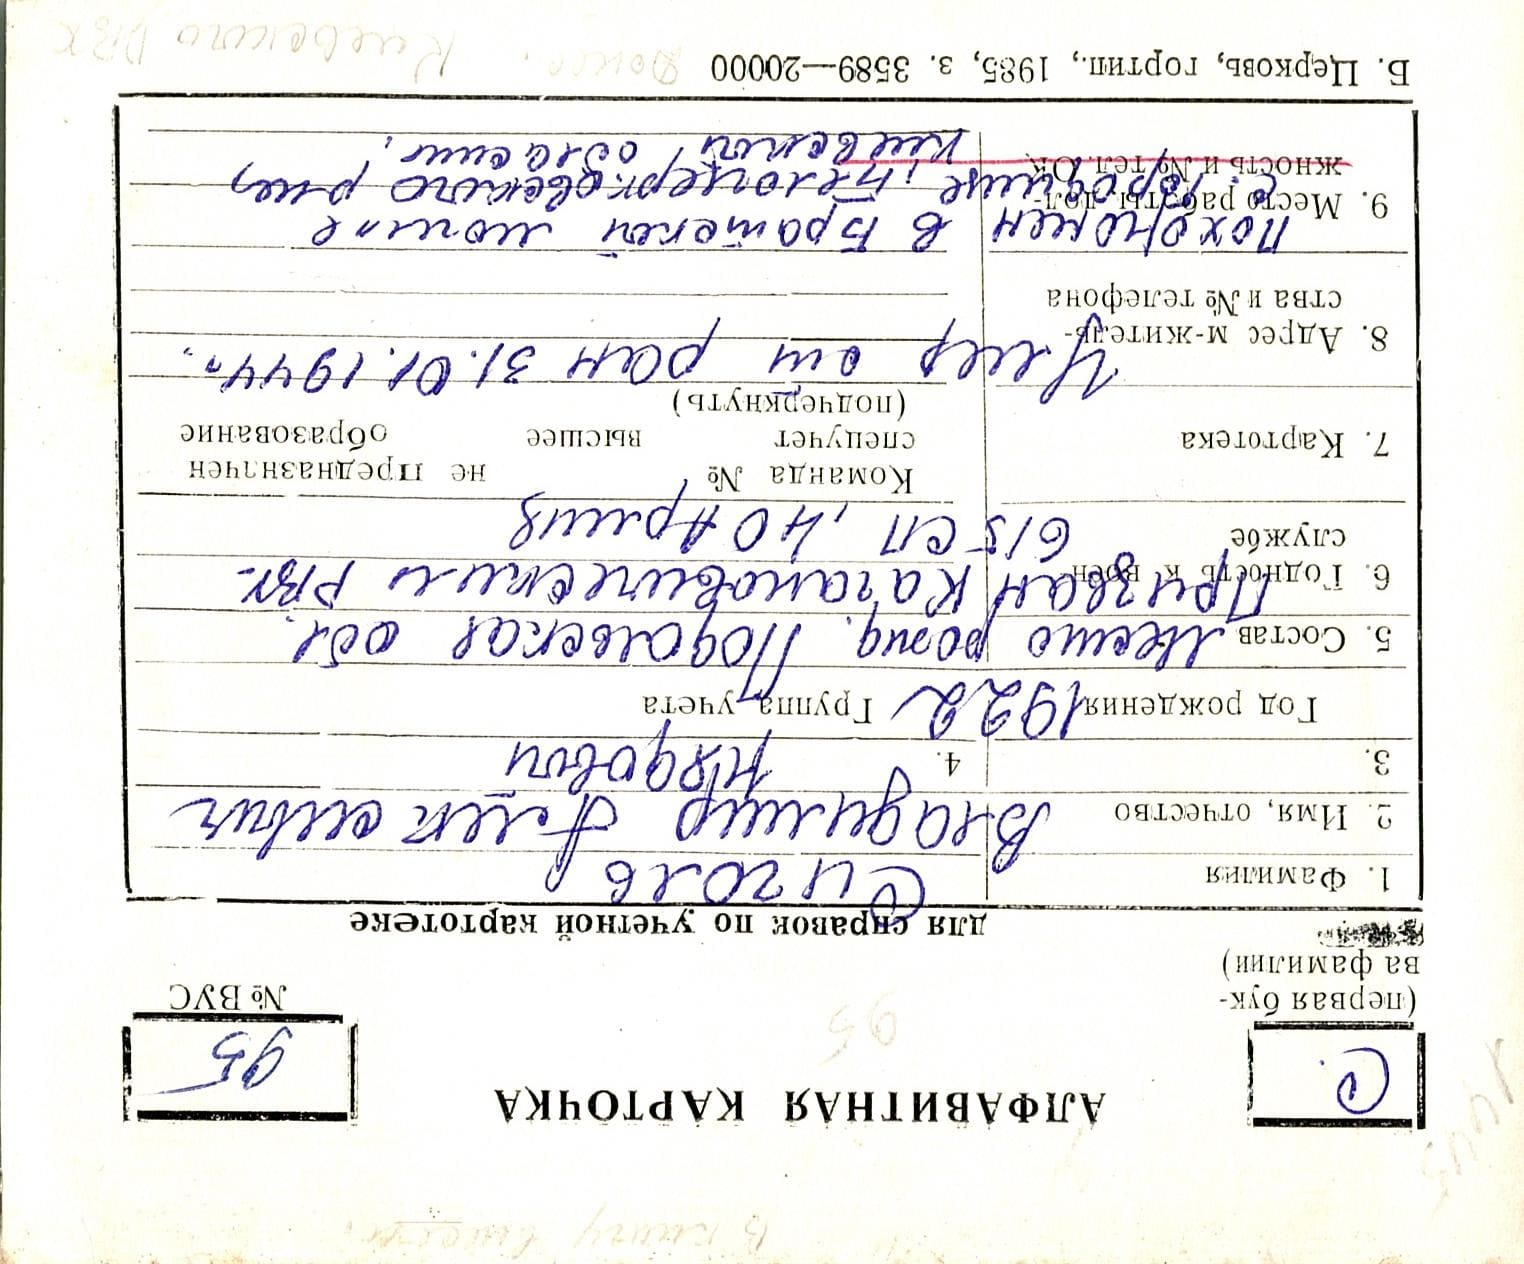 В книгу внесен.
АЛФАВИТНАЯ КАРТОЧКА
С.
95
(первая бук-
ва фамилии)
№ ВУС
95
для справок по учетной картотеке
1. Фамилия Сиголь
2. Имя, отчество Владимир
3. 4.
Год рождения 1922 Группа учета
5. Состав Место рожд. Подольская обл.
6. Годность к воен. Призван Кагановическим РВК
службе 615 СП, 40 Армия
7. Картотека Команда № не предназначен
спецучет высшее образование
(подчеркнуть)
8. Адрес м-житель- Умер от ран 31.01.1944г.
ства и № телефона
9. Место работы дол- Похоронен в Братской могиле
жность и № тел. ОК Белоцерковского р-на,
Киевской области.
Б. Церковь, гортип., 1985, з. 3589—20000
Донес. Киевского РВК